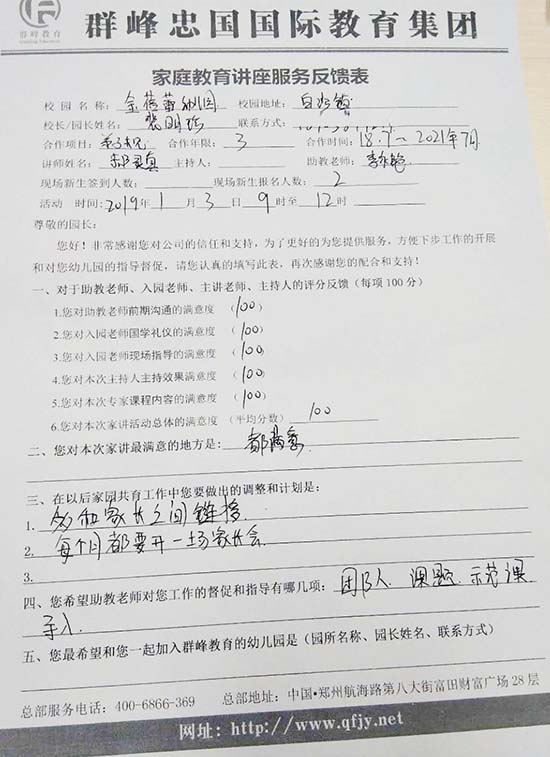 群峰教育
群峰忠国国际教育集团
家庭教育讲座服务反馈表
校园名称：金蓓蕾幼儿园 校园地址：
校长/园长姓名： 联系方式：
合作项目： 合作年限：3 合作时间：18.9~2021年7月
讲师姓名： 主持人： 助教老师：
现场新生签到人数： 现场新生报名人数：2
活动 时间：2019年1月3日9时至12时
尊敬的园长：
您好！非常感谢您对公司的信任和支持，为了更好的为您提供服务，方便下步工作的开展
和对您幼儿园的指导督促，请您认真的填写此表，再次感谢您的配合和支持！
一、对于助教老师、入园老师、主讲老师、主持人的评分反馈（每项100分）
1.您对助教老师前期沟通的满意度 （100）
2.您对入园老师国学礼仪的满意度 （100）
3.您对入园老师现场指导的满意度 （100）
4.您对本次主持人主持效果满意度 （100）
5.您对本次专家课程内容的满意度 （100）
6.您对本次家讲活动总体的满意度 （平均分数）100
二、您对本次家讲最满意的地方是：都满意
三、在以后家园共育工作中您要做出的调整和计划是：
1. 多和家长之间链接
2. 每个月都要开一场家长会
3.
四、您希望助教老师对您工作的督促和指导有哪几项：团队人 课 示范课
导入
五、您最希望和您一起加入群峰教育的幼儿园是（园所名称、园长姓名、联系方式）
总部服务电话：400-6866-369 总部地址：中国·郑州航海路第八大街富田财富广场28层
网址：http://www.qfjy.net